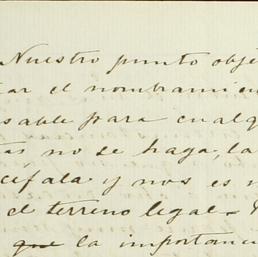 Nuestro punto obje
tar el nombramien
sable para cualq
as no se haga, la
céfala y nos es n
el terreno legal.
que la importanci